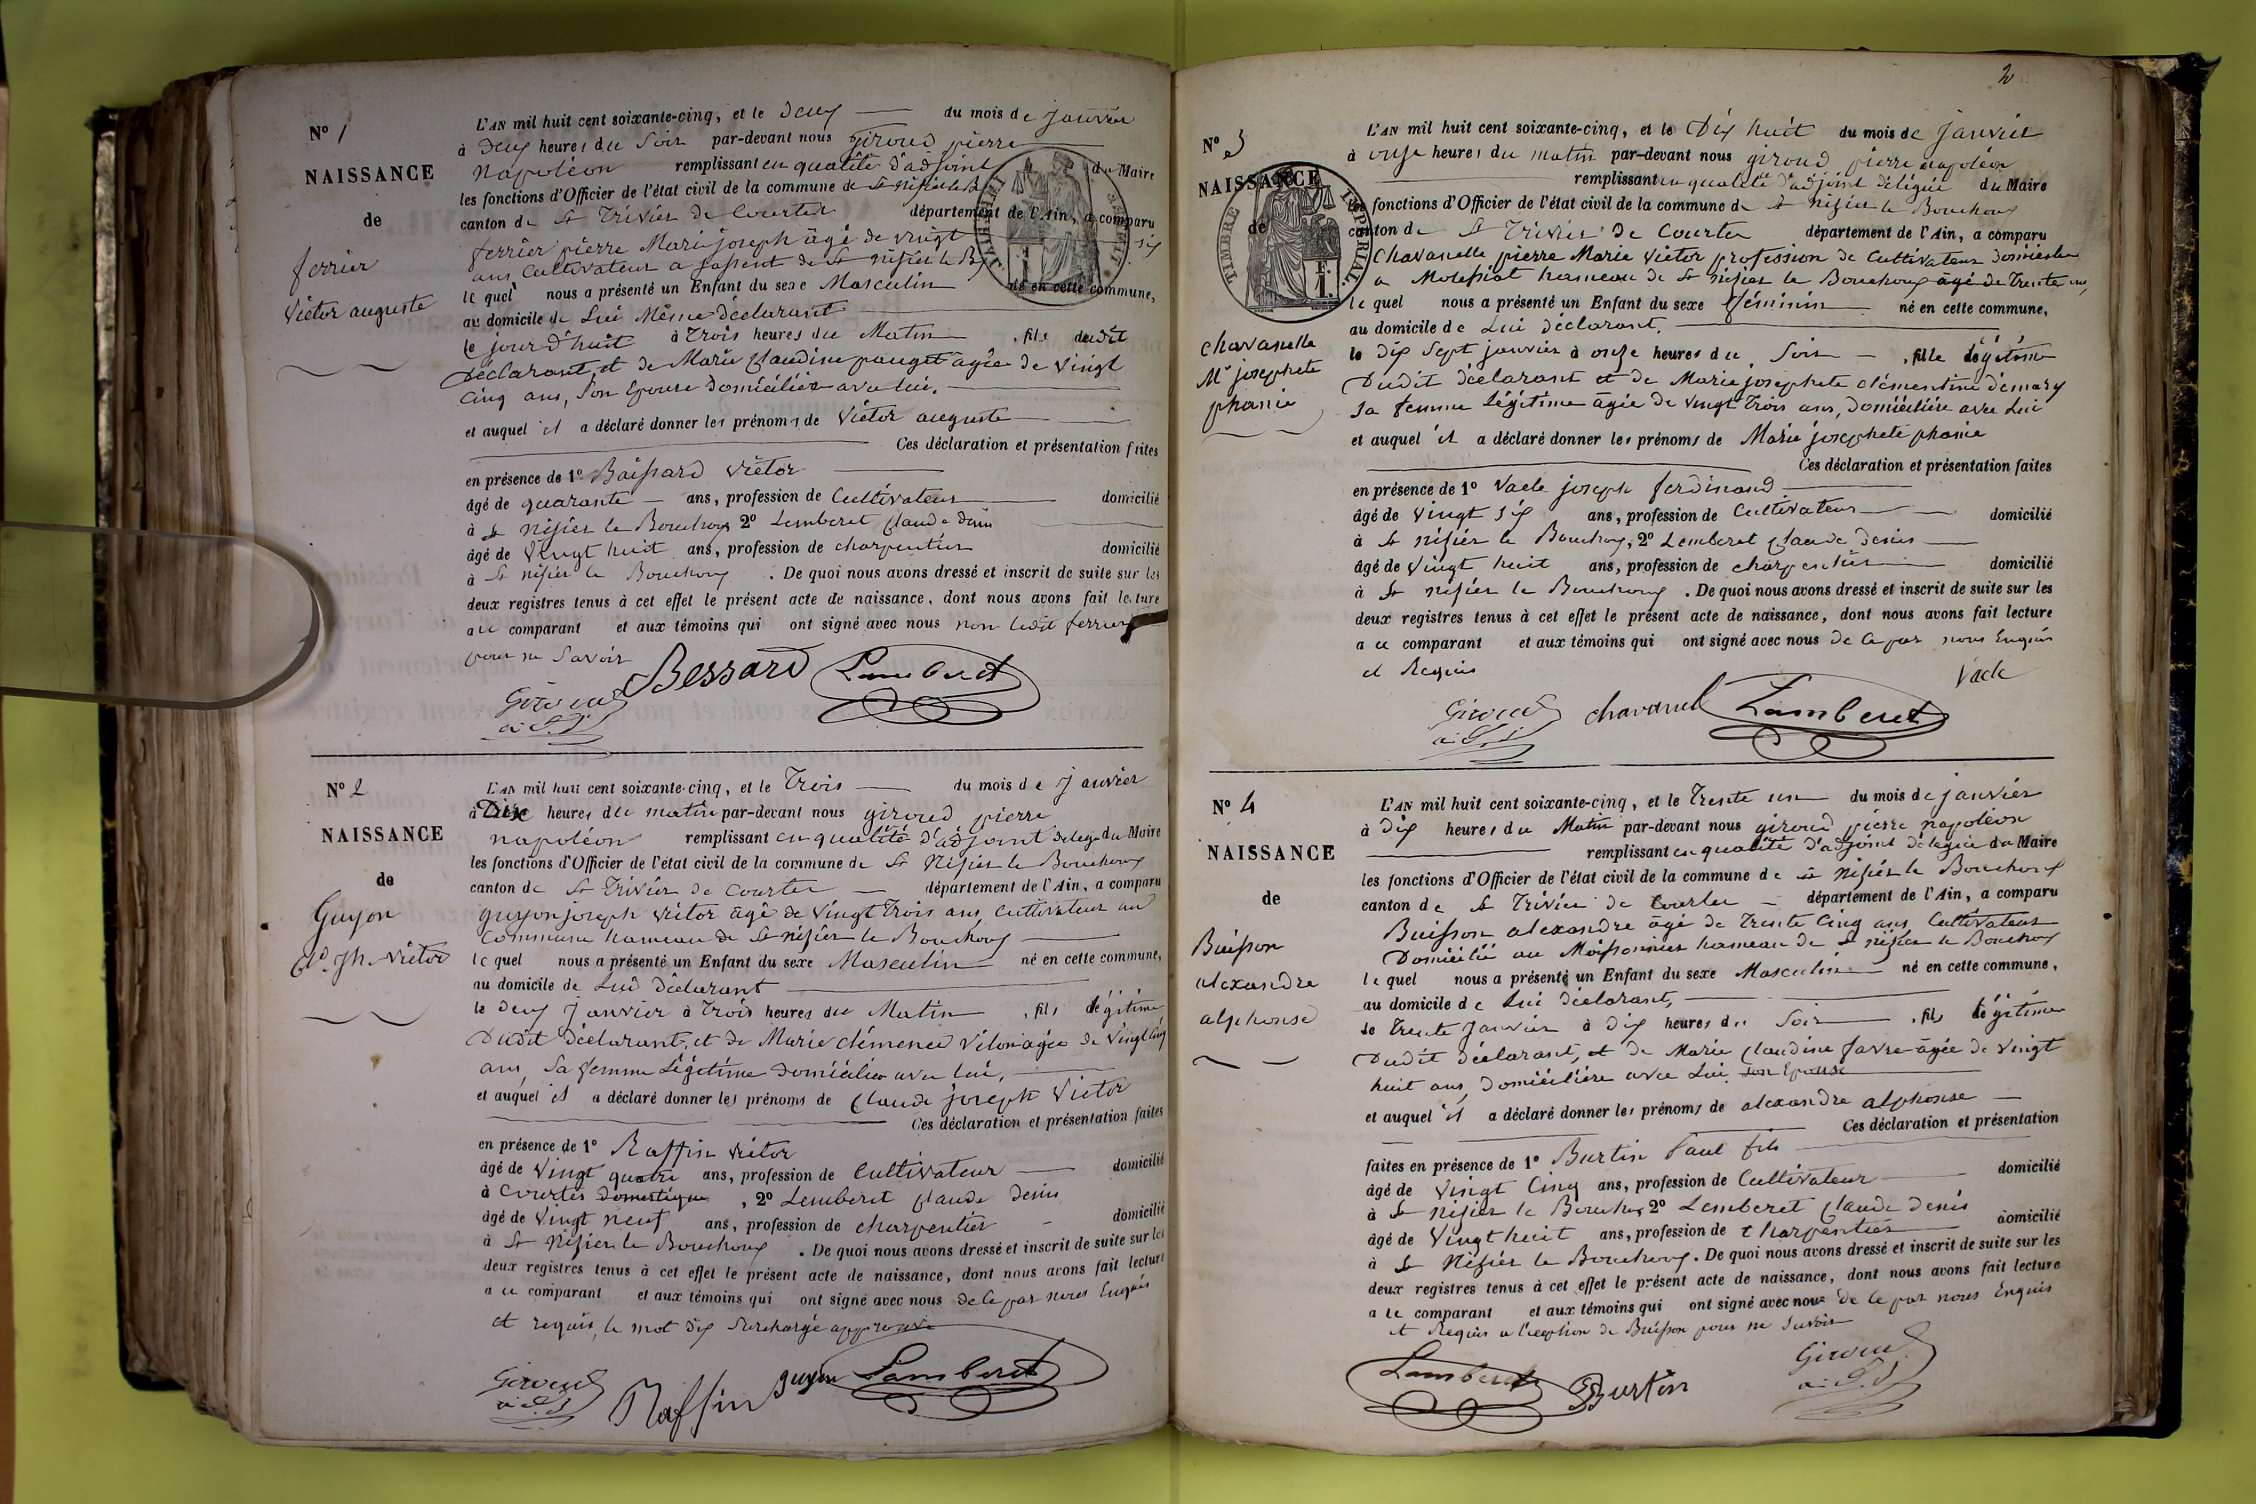 N° 1
NAISSANCE
de
ferrier
Victor auguste
L'AN mil huit cent soixante-cinq, et le deux du mois de janvier
à deux heures du Soir par-devant nous giroud pierre
napoléon remplissant en qualité d'adjoint du Maire
les fonctions d'Officier de l'état civil de la commune de St nisier le B
canton de St Trivier de Courtes département de l'Ain, a comparu
ferrier pierre Marie joseph âgé de vingt six
ans Cultivateur a de St nisier le B
le quel nous a présenté un Enfant du sexe Masculin né en cette commune,
au domicile de Lui Même déclarant
le jour d'huit à trois heures du Matin , fils dudit
déclarant et de Marie Claudine pauget âgée de vingt
cinq ans, Son épouse domiciliée avec lui.
et auquel il a déclaré donner les prénoms de Victor auguste
Ces déclaration et présentation faites
en présence de 1° Baissard Victor
âgé de quarante ans, profession de Cultivateur domicilié
à St nisier le Bouchoux 2° Lemberet Claude denis
âgé de Vingt huit ans, profession de charpentier domicilié
à St nisier le Bouchoux . De quoi nous avons dressé et inscrit de suite sur les
deux registres tenus à cet effet le présent acte de naissance, dont nous avons fait lecture
au comparant et aux témoins qui ont signé avec nous non ledit ferrier
pour ne Savoir
Bessard Lamberet
Giroud
N° 2
NAISSANCE
de
Guyon
Cde jh. Victor
L'AN mil huit cent soixante-cinq, et le Trois du mois de janvier
à Dix heures du matin par-devant nous giroud pierre
napoléon remplissant en qualité d'adjoint delegé du Maire
les fonctions d'Officier de l'état civil de la commune de St Nisier le Bouchoux
canton de St Trivier de Courtes département de l'Ain, a comparu
guyon joseph Victor âgé de vingt Trois ans, Cultivateur au
Commune hameau de St nisier le Bouchoux
le quel nous a présenté un Enfant du sexe Masculin né en cette commune,
au domicile de Lui déclarant
le deux janvier à Trois heures du Matin , fils légitime
dudit déclarant, et de Marie clémence âgée de Vingt cinq
ans, Sa femme Légitime domiciliée avec lui,
et auquel il a déclaré donner les prénoms de Claude joseph Victor
Ces déclaration et présentation faites
en présence de 1° Raffin Victor
âgé de Vingt quatre ans, profession de Cultivateur domicilié
à Courtes domestique , 2° Lemberet Claude denis
âgé de Vingt neuf ans, profession de charpentier domicilié
à St Nisier le Bouchoux . De quoi nous avons dressé et inscrit de suite sur les
deux registres tenus à cet effet le présent acte de naissance, dont nous avons fait lecture
au comparant et aux témoins qui ont signé avec nous de ce par nous Enquis
et requis, le mot dix surchargé approuvé
Giroud Raffin guyon Lamberet
2
N° 3
NAISSANCE
de
TIMBRE IMPERIAL
chavanelle
Me josephete
phanie
L'AN mil huit cent soixante-cinq, et le Dix huit du mois de janvier
à onze heures du matin par-devant nous giroud pierre napoléon
remplissant en qualité d'adjoint délégué du Maire
les fonctions d'Officier de l'état civil de la commune de St nisier le Bouchoux
canton de St Trivier de Courtes département de l'Ain, a comparu
Chavanelle pierre Marie Victor profession de Cultivateur domicilié
a hameau de St nisier le Bouchoux âgé de Trente ans,
le quel nous a présenté un Enfant du sexe féminin né en cette commune,
au domicile de Lui déclarant.
le dix Sept janvier à onze heures du Soir , fille légitime
dudit déclarant et de Marie josephete clémentine démary
Sa femme Légitime âgée de vingt Trois ans, domiciliée avec Lui
et auquel il a déclaré donner les prénoms de Marie josephete phanie
Ces déclaration et présentation faites
en présence de 1° Vacle joseph ferdinand
âgé de Vingt six ans, profession de Cultivateur domicilié
à St nisier le Bouchoux, 2° Lemberet Claude denis
âgé de Vingt huit ans, profession de charpentier domicilié
à St nisier le Bouchoux . De quoi nous avons dressé et inscrit de suite sur les
deux registres tenus à cet effet le présent acte de naissance, dont nous avons fait lecture
au comparant et aux témoins qui ont signé avec nous de ce par nous Enquis
et Requis
Vacle
Giroud chavanel Lamberet
N° 4
NAISSANCE
de
Buisson
alexandre
alphonse
L'AN mil huit cent soixante-cinq, et le Trente un du mois de janvier
à dix heures du Matin par-devant nous giroud pierre napoléon
remplissant en qualité d'adjoint délégué du Maire
les fonctions d'Officier de l'état civil de la commune de St nisier le Bouchoux
canton de St Trivier de Courtes département de l'Ain, a comparu
Buisson alexandre âgé de Trente Cinq ans Cultivateur
Domicilié au Moissonnier hameau de St nisier le Bouchoux
le quel nous a présenté un Enfant du sexe Masculin né en cette commune,
au domicile de Lui déclarant,
le Trente janvier à dix heures du Soir , fils légitime
dudit déclarant, et de Marie Claudine favre âgée de vingt
huit ans, domiciliée avec Lui son Epouse
et auquel il a déclaré donner les prénoms de alexandre alphonse
Ces déclaration et présentation
faites en présence de 1° Burtin Paul fils
âgé de Vingt Cinq ans, profession de Cultivateur domicilié
à St nisier le Bouchoux 2° Lemberet Claude denis
âgé de Vingt huit ans, profession de charpentier domicilié
à St Nisier le Bouchoux . De quoi nous avons dressé et inscrit de suite sur les
deux registres tenus à cet effet le présent acte de naissance, dont nous avons fait lecture
au comparant et aux témoins qui ont signé avec nous de ce par nous Enquis
et Requis a l'exeption de Buisson pour ne Savoir
Lamberet Burtin Giroud